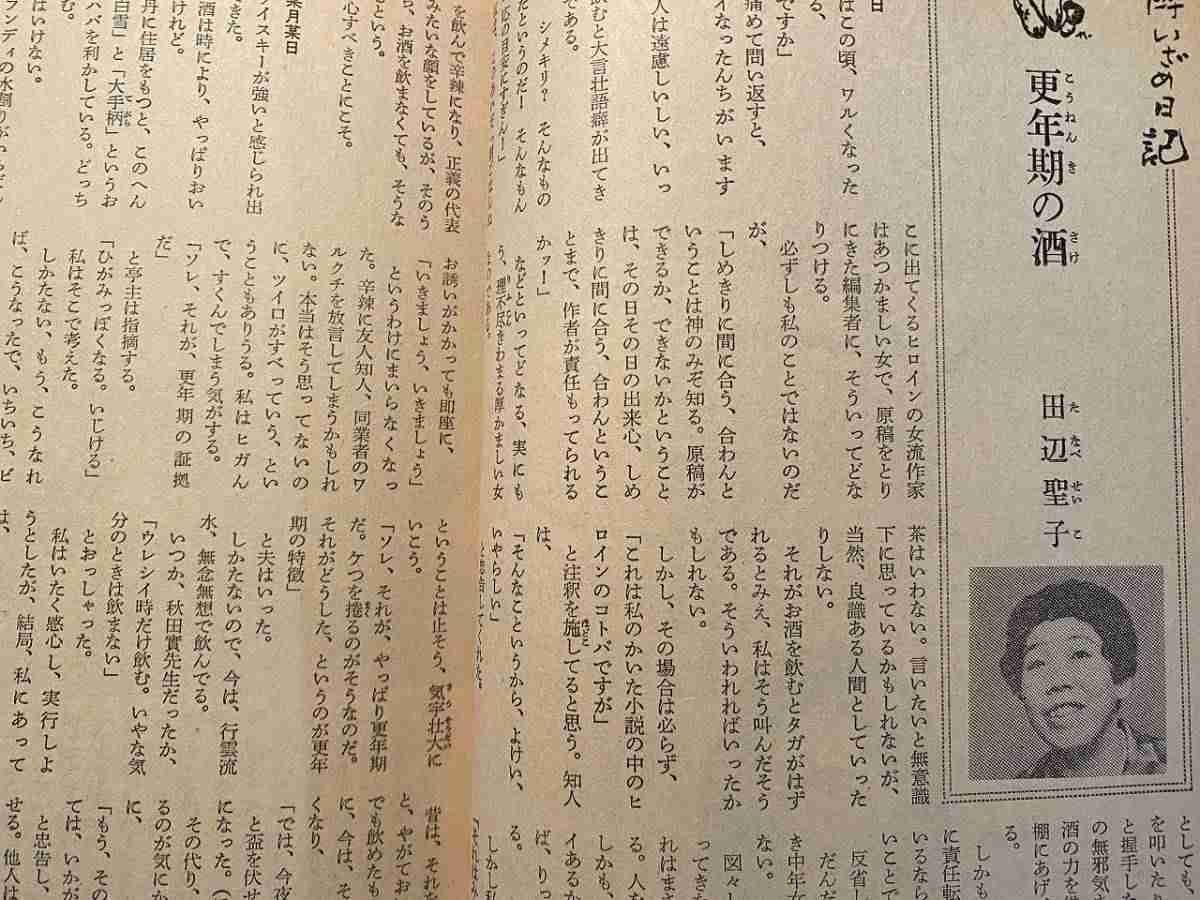 酔いざめ日記
更年期の酒
こうねんき
さけ
田辺聖子
たなべせいこ
日
はこの頃、ワルくなった
る、
ですか」
痛めて問い返すと、
イなったんちがいます
人は遠慮しいしい、いっ
である。
飲むと大言壮語癖が出てき
シメキリ？　そんなもの
だというのだ！　そんなもん
こに出てくるヒロインの女流作家
はあつかましい女で、原稿をとり
にきた編集者に、そういってどな
りつける。
必ずしも私のことではないのだ
が、
「しめきりに間に合う、合わんと
いうことは神のみぞ知る。原稿が
できるか、できないかということ
は、その日その日の出来心、しめ
きりに間に合う、合わんというこ
とまで、作者が責任もってられる
かッー」
などといってどなる、実にも
う、理不尽きわまる厚かましい女
茶はいわない。言いたいと無意識
下に思っているかもしれないが、
当然、良識ある人間としていった
りしない。
それがお酒を飲むとタガがはず
れるとみえ、私はそう叫んだそう
である。そういわれればいったか
もしれない。
しかし、その場合は必らず、
「これは私のかいた小説の中のヒ
ロインのコトバですが」
と注釈を施してると思う。知人
は、
「そんなこというから、よけい、
いやらしい」
としても、
を叩いたり
と握手した
の無邪気さ
酒の力を借
棚にあげ
る。
しかも
に責任転
いるなら
いことで
反省し
だんだ
き中年女
ない。
図々し
ってきた
れはまさ
る。人を
しかも、
イあるか
ば、りっ
る。
しかし私
を飲んで辛辣になり、正義の代表
みたいな顔をしているが、そのう
ち、お酒を飲まなくても、そうな
という。
心すべきことにこそ。
某月某日
イスキーが強いと感じられ出
きた。
酒は時により、やっぱりおい
けれど。
丹に住居をもつと、このへん
白雪」と「大手柄」というお
ハバを利かしている。どっち
む。
はいけない。
お誘いがかかっても即座に、
「いきましょう、いきましょう」
というわけにまいらなくなっ
た。辛辣に友人知人、同業者のワ
ルクチを放言してしまうかもしれ
ない。本当はそう思ってないの
に、ツイロがすべっていう、とい
うこともありうる。私はヒガん
で、すくんでしまう気がする。
「ソレ、それが、更年期の証拠
だ」
と亭主は指摘する。
「ひがみっぽくなる。いじける」
私はそこで考えた。
しかたない、もう、こうなれ
ば、こうなったで、いちいち、ビ
ということは止そう、気宇壮大に
いこう。
「ソレ、それが、やっぱり更年期
だ。ケツを捲るのがそうなのだ。
それがどうした、というのが更年
期の特徴」
と夫はいった。
しかたないので、今は、行雲流
水、無念無想で飲んでる。
いつか、秋田實先生だったか、
「ウレシイ時だけ飲む。いやな気
分のときは飲まない」
とおっしゃった。
私はいたく感心し、実行しよ
うとしたが、結局、私にあって
は、
昔は、それを
と、やがてお
でも飲めたも
に、今は、そ
くなり、
「では、今夜
と盃を伏せ
になった。（
その代り、
るのが気にか
に、
「もう、その
ては、いかが
と忠告し、
せる。他人は